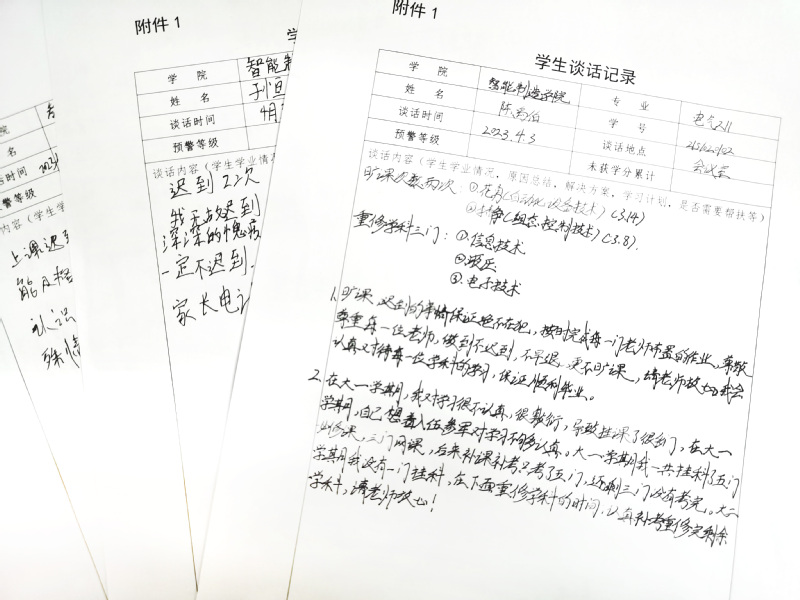 附件 1
学生谈话记录
学 院
智能制造学院
专 业
电气211
姓 名
学 号
谈话时间
2023.4.3
谈话地点
会议室
预警等级
未获学分累计
谈话内容（学生学业情况，原因总结，解决方案，学习计划，是否需要帮扶等）
旷课次数两次：① (自动化设备技术) (3.14)
② (组态控制技术) (3.8).
重修学科三门：①信息技术
②液压
③电子技术
1.旷课、迟到的事情保证绝不在犯，按时完成每一门老师布置的作业，尊敬
尊重每一位老师，做到不迟到，不早退，更不旷课，请老师放心，我会
认真对待每一位学科的学习，保证顺利毕业。
2.在大一学期，我对学习很不认真，很敷衍，导致挂课了很多门，在大一
学期，自己想着入伍参军对学习不够认真。大一学期我一共挂科了五门
课，三门网课，后来补课补考又考了五门，还剩三门没有考完。大二
学期我没有一门挂科，在下面重修学科的时间，认真补考重修完剩余
学科，请老师放心！
附件 1
学 院
智能制
姓 名
孙恒
谈话时间
4月
预警等级
谈话内容（学生学业情
迟到22次
我 迟到
深深的愧疚
一定不迟到.
家长电
院
名
话时间
警等级
内容（学生学
上课迟
能及格
认识